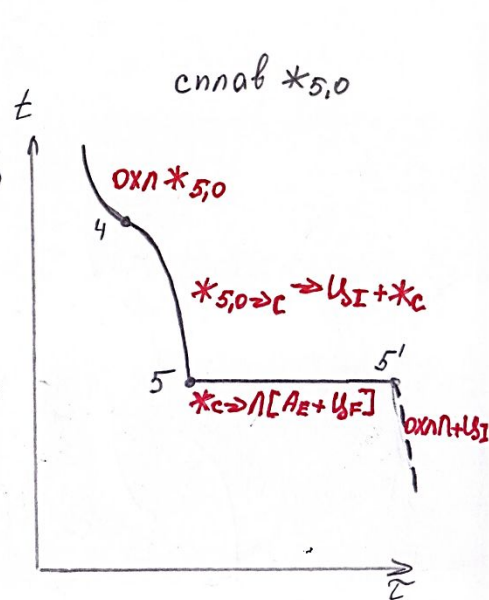 сплав ж5,0
t
охл ж5,0
4
ж5,0→C → ЦI + жC
5
5'
жC→Л[AE+ЦF]
охлЛ+ЦI
τ